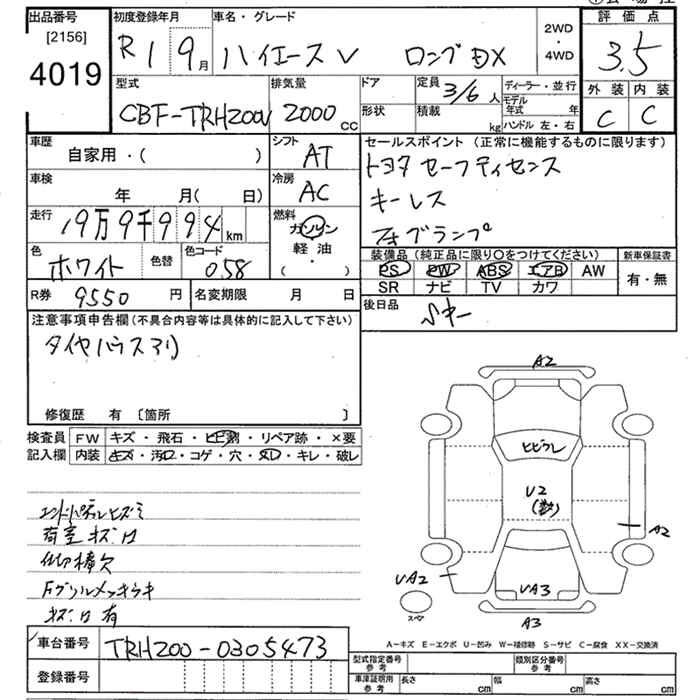 出品番号
[2156]
4019
初度登録年月
R1 9月
車名・グレード
ハイエースV ロングDX
2WD
・
4WD
評価点
3.5
型式
CBF-TRH200V
排気量
2000 cc
ドア
形状
定員
3/6人
積載
kg
ディーラー・並行
モデル年式 年
ハンドル 左・右
外装 内装
C C
車歴
自家用・( )
シフト
AT
セールスポイント(正常に機能するものに限ります)
トヨタセーフティセンス
キーレス
フォグランプ
車検
年 月( 日)
冷房
AC
走行
19万9千994km
燃料
ガソリン
軽油
( ・ )
色
ホワイト
色替
色コード
058
装備品(純正品に限り○をつけてください)
PS PW ABS エアB AW
SR ナビ TV カワ
新車保証書
有・無
R券 9550円
名変期限 月 日
後日品
Sキー
注意事項申告欄(不具合内容等は具体的に記入して下さい)
タイヤハウスヌリ
修復歴 有 〔箇所 〕
検査員
記入欄
FW キズ・飛石・ヒビ割・リペア跡・×要
内装 キズ・汚レ・コゲ・穴・ヌレ・キレ・破レ
エンドパネルヒズミ
荷室キズ凹
Fグリルメッキウキ
キズ凹有
A2
ヒビワレ
U2
A2
UA2
UA3
A3
スペア
A-キズ E-エクボ U-凹み W-補修跡 S-サビ C-腐食 XX-交換済
車台番号 TRH200-0305473
登録番号
型式指定番号
参考
類別区分番号
参考
車庫証明用
参考
長さ cm 幅 cm 高さ cm